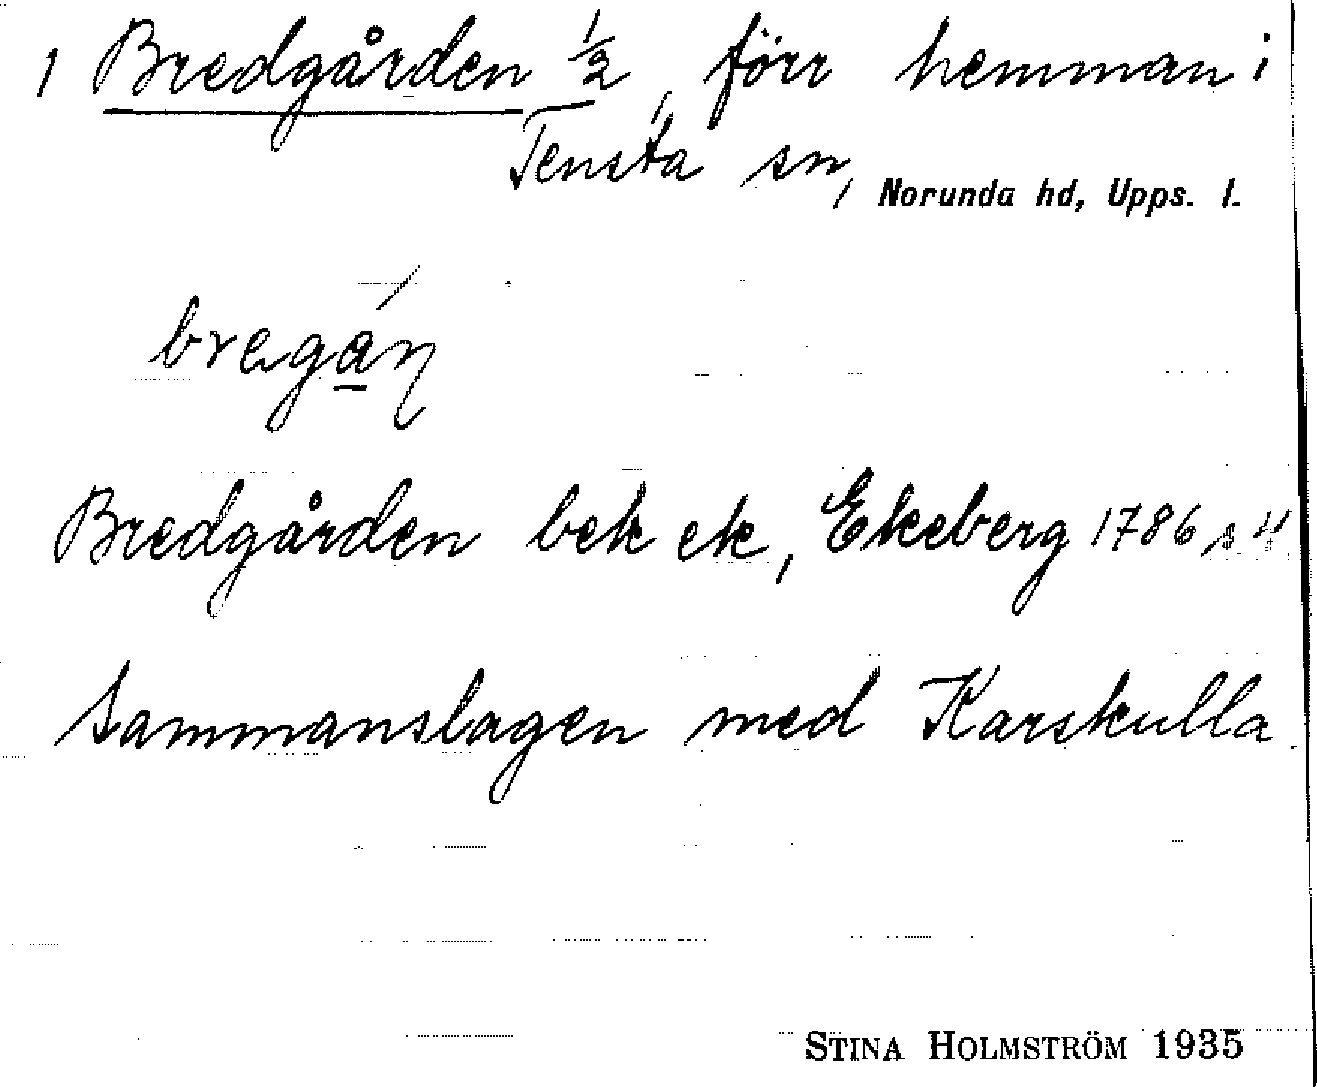 1 Bredgården 1/2, förr hemman i
Tensta sn, Norunda hd, Upps. l.
Bredgården bek ek, Ekeberg 1786 s 4
Sammanslagen med Karskulla
STINA HOLMSTRÖM 1935